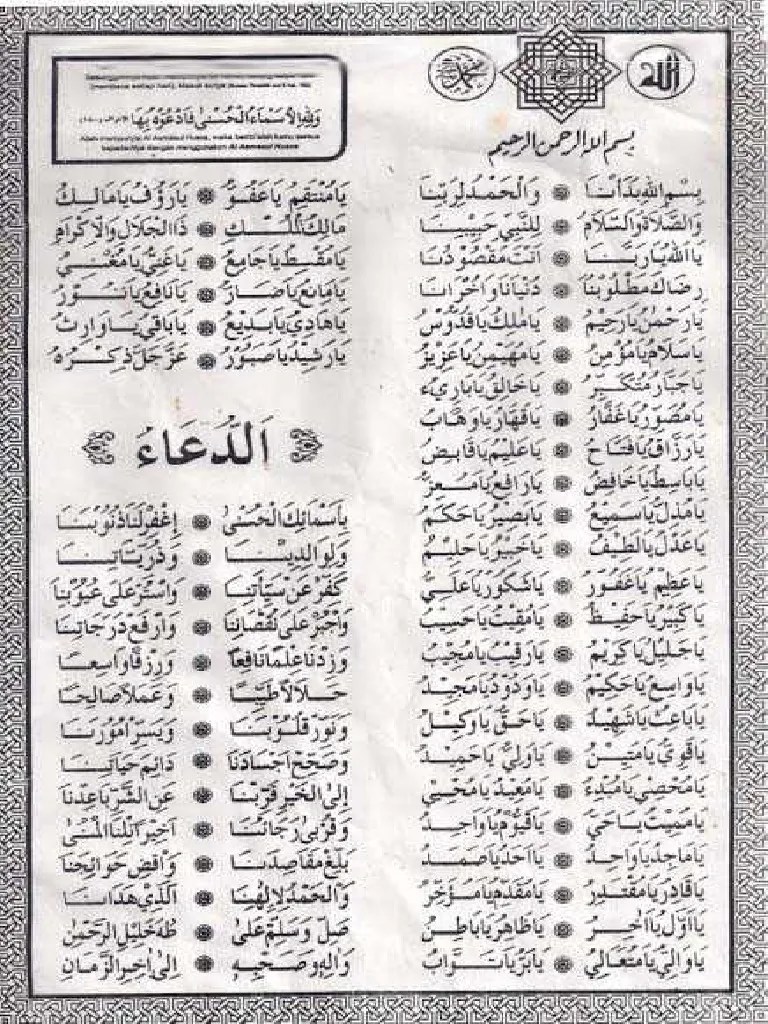 الله
محمد
بسم الله الرحمن الرحيم
بِسْمِ اللهِ بَدَأْنَا ۞ وَالْحَمْدُ لِرَبِّنَا
وَالصَّلَاةُ وَالسَّلَامُ ۞ لِلنَّبِيِّ حَبِيْبِنَا
يَا اللهُ يَا رَبَّنَا ۞ أَنْتَ مَقْصُوْدُنَا
رِضَاكَ مَطْلُوْبُنَا ۞ دُنْيَانَا وَاُخْرَانَا
يَا رَحْمٰنُ يَا رَحِيْمُ ۞ يَا مَلِكُ يَا قُدُّوْسُ
يَا سَلَامُ يَا مُؤْمِنُ ۞ يَا مُهَيْمِنُ يَا عَزِيْزُ
يَا جَبَّارُ مُتَكَبِّرُ ۞ يَا خَالِقُ يَا بَارِئُ
يَا مُصَوِّرُ يَا غَفَّارُ ۞ يَا قَهَّارُ يَا وَهَّابُ
يَا رَزَّاقُ يَا فَتَّاحُ ۞ يَا عَلِيْمُ يَا قَابِضُ
يَا بَاسِطُ يَا خَافِضُ ۞ يَا رَافِعُ يَا مُعِزُّ
يَا مُذِلُّ يَا سَمِيْعُ ۞ يَا بَصِيْرُ يَا حَكَمُ
يَا عَدْلُ يَا لَطِيْفُ ۞ يَا خَبِيْرُ يَا حَلِيْمُ
يَا عَظِيْمُ يَا غَفُوْرُ ۞ يَا شَكُوْرُ يَا عَلِيُّ
يَا كَبِيْرُ يَا حَفِيْظُ ۞ يَا مُقِيْتُ يَا حَسِيْبُ
يَا جَلِيْلُ يَا كَرِيْمُ ۞ يَا رَقِيْبُ يَا مُجِيْبُ
يَا وَاسِعُ يَا حَكِيْمُ ۞ يَا وَدُوْدُ يَا مَجِيْدُ
يَا بَاعِثُ يَا شَهِيْدُ ۞ يَا حَقُّ يَا وَكِيْلُ
يَا قَوِيُّ يَا مَتِيْنُ ۞ يَا وَلِيُّ يَا حَمِيْدُ
يَا مُحْصِيْ يَا مُبْدِءُ ۞ يَا مُعِيْدُ يَا مُحْيِيْ
يَا مُمِيْتُ يَا حَيُّ ۞ يَا قَيُّوْمُ يَا وَاجِدُ
يَا مَاجِدُ يَا وَاحِدُ ۞ يَا اَحَدُ يَا صَمَدُ
يَا قَادِرُ يَا مُقْتَدِرُ ۞ يَا مُقَدِّمُ يَا مُؤَخِّرُ
يَا اَوَّلُ يَا اٰخِرُ ۞ يَا ظَاهِرُ يَا بَاطِنُ
يَا وَالِيْ يَا مُتَعَالِيْ ۞ يَا بَرُّ يَا تَوَّابُ
وَلِلّٰهِ الْاَسْمَاءُ الْحُسْنٰى فَادْعُوْهُ بِهَا
يَا مُنْتَقِمُ يَا عَفُوُّ ۞ يَا رَؤُفُ يَا مَالِكُ
مَالِكَ الْمُلْكِ ۞ ذَا الْجَلَالِ وَالْاِكْرَامِ
يَا مُقْسِطُ يَا جَامِعُ ۞ يَا غَنِيُّ يَا مُغْنِيْ
يَا مَانِعُ يَا ضَارُّ ۞ يَا نَافِعُ يَا نُوْرُ
يَا هَادِيْ يَا بَدِيْعُ ۞ يَا بَاقِيْ يَا وَارِثُ
يَا رَشِيْدُ يَا صَبُوْرُ ۞ عَزَّ جَلَّ ذِكْرُهُ
اَلدُّعَاءُ
بِاَسْمَائِكَ الْحُسْنٰى ۞ اِغْفِرْ لَنَا ذُنُوْبَنَا
وَلِوَالِدِيْنَا ۞ وَذُرِّيَّاتِنَا
كَفِّرْ عَنْ سَيِّاٰتِنَا ۞ وَاسْتُرْ عَلٰى عُيُوْبِنَا
وَاجْبُرْ عَلٰى نُقْصَانِنَا ۞ وَارْفَعْ دَرَجَاتِنَا
وَزِدْنَا عِلْمًا نَافِعًا ۞ وَرِزْقًا وَاسِعًا
حَلَالًا طَيِّبًا ۞ وَعَمَلًا صَالِحًا
وَنَوِّرْ قُلُوْبَنَا ۞ وَيَسِّرْ اُمُوْرَنَا
وَصَحِّحْ اَجْسَادَنَا ۞ دَائِمَ حَيَاتِنَا
اِلَى الْخَيْرِ قَرِّبْنَا ۞ عَنِ الشَّرِّ بَاعِدْنَا
وَقُرْبٰى رَجَائُنَا ۞ اَخِيْرًا نِلْنَا الْمُنٰى
بَلِّغْ مَقَاصِدَنَا ۞ وَاقْضِ حَوَائِجَنَا
وَالْحَمْدُ لِاِلٰهِنَا ۞ اَلَّذِيْ هَدَانَا
صَلِّ وَسَلِّمْ عَلٰى ۞ طٰهٰ خَلِيْلِ الرَّحْمٰنِ
وَاٰلِهِ وَصَحْبِهِ ۞ اِلٰى اٰخِرِ الزَّمَانِ